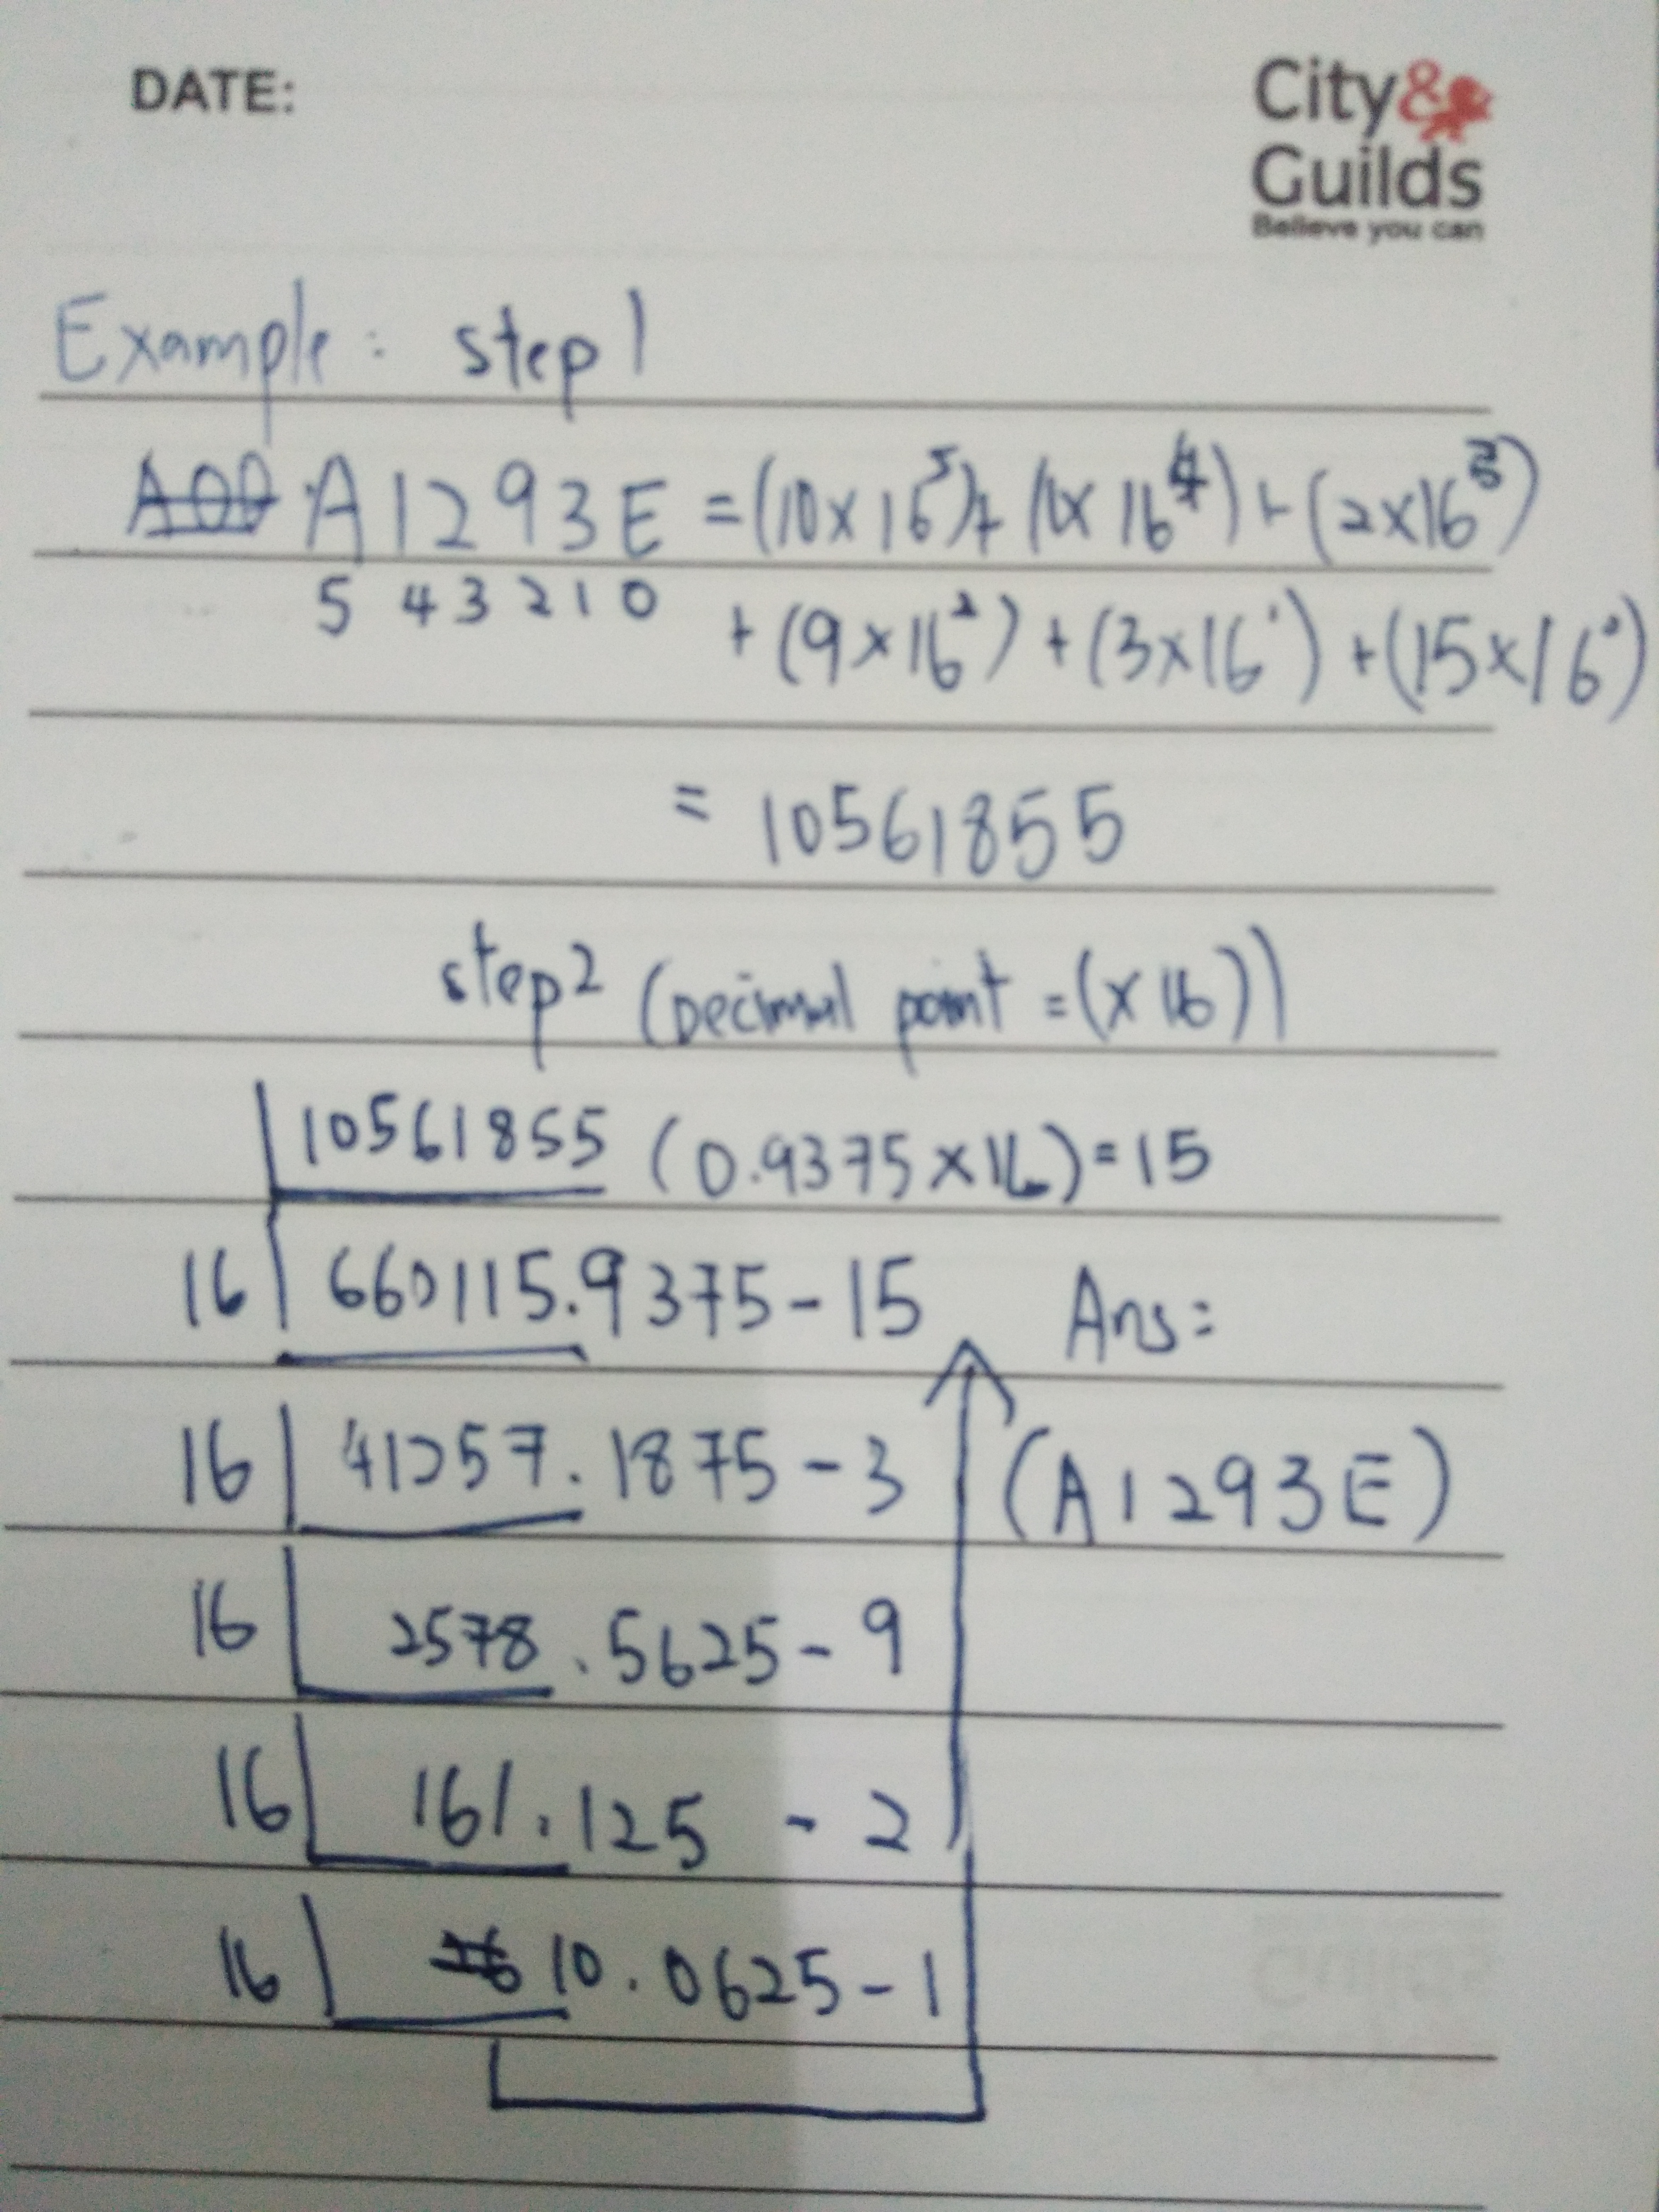 DATE:
City&
Guilds
Believe you can
Example: step 1
A1293E = (10x16⁵)+ (1x16⁴) + (2x16³)
5 4 3 2 1 0 + (9x16²) + (3x16¹) + (15x16⁰)
= 10561855
step2 (Decimal point = (x16))
10561855 (0.9375x16) = 15
16 660115.9375 - 15 Ans:
16 41257.1875 - 3 (A1293E)
16 2578.5625 - 9
16 161.125 - 2
16 10.0625 - 1